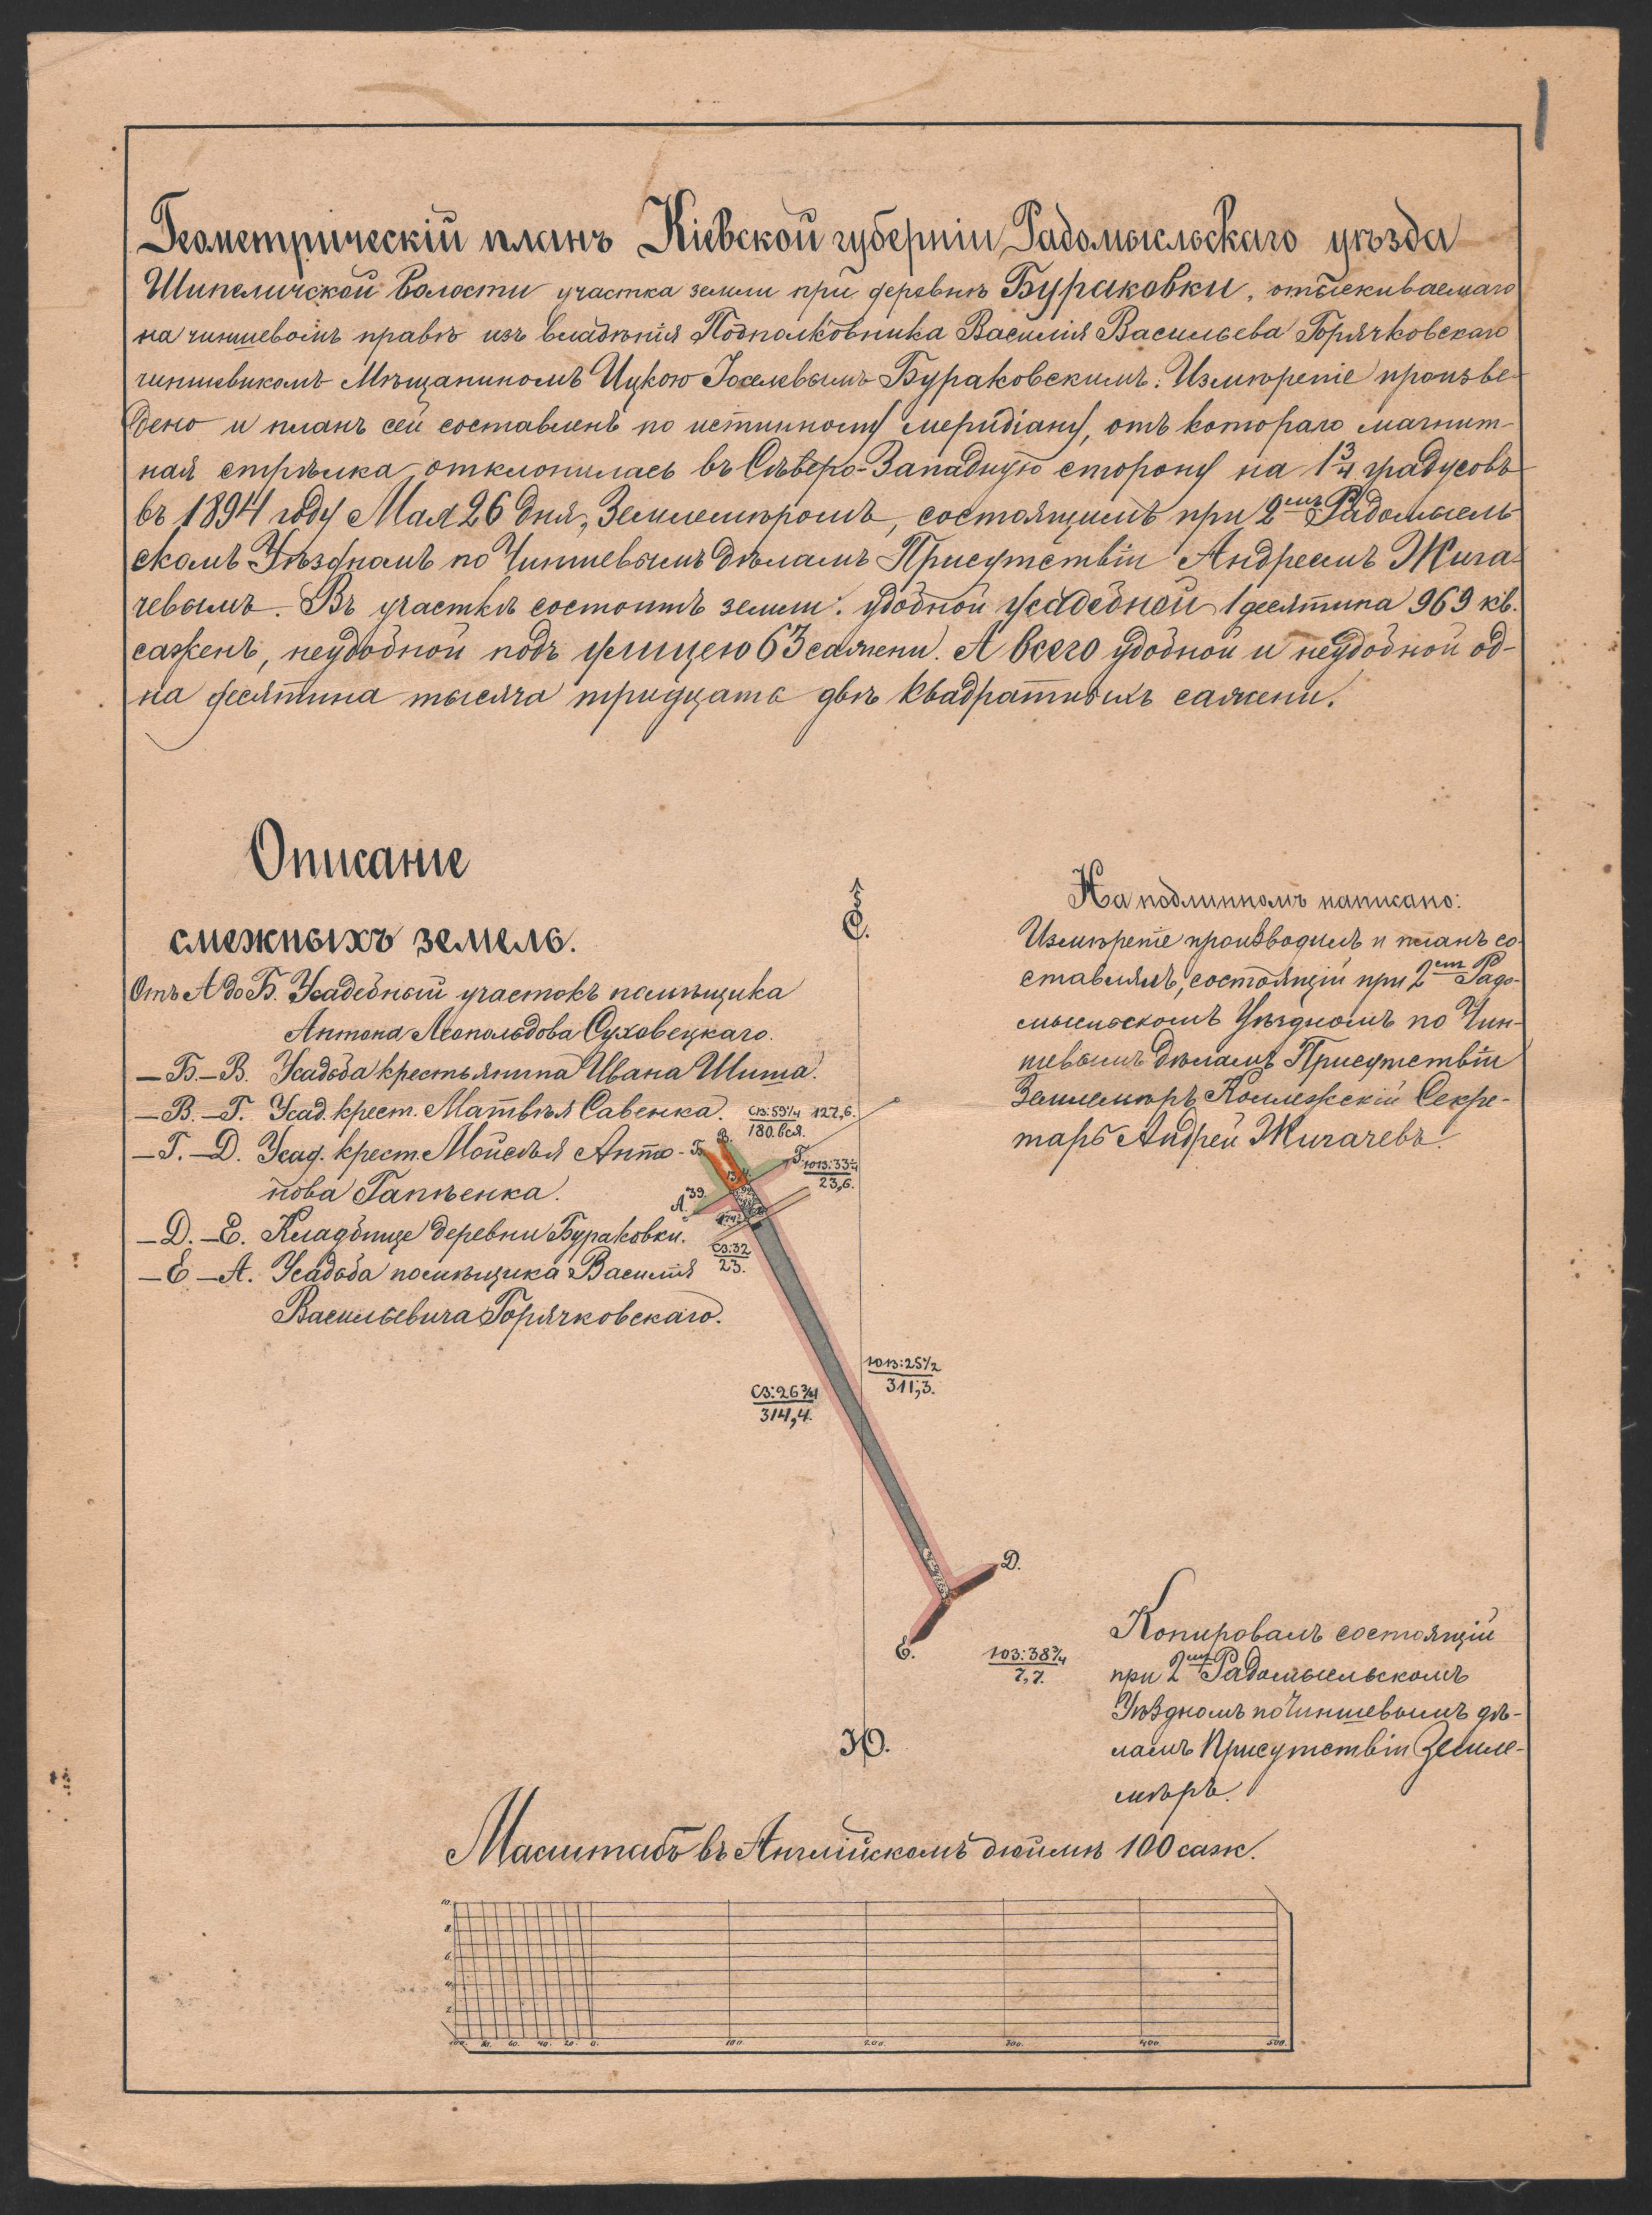 Геометрическій планъ Кіевской губерніи Радомысльскаго уѣзда
Шипеличской волости участка земли при деревнѣ Бураковки, отыскиваемаго
на чиншевомъ правѣ изъ владѣнія Подполковника Василія Васильева Горячковскаго
чиншевикомъ Мѣщаниномъ Ицкою Іоселевымъ Бураковскимъ. Измѣреніе произве-
дено и планъ сей составленъ по истинному меридіану, отъ котораго магнит-
ная стрѣлка отклонилась въ Сѣверо-Западную сторону на 1¾ градусовъ
въ 1894 году Мая 26 дня, Землемѣромъ, состоящимъ при 2мъ Радомысль-
скомъ Уѣздномъ по Чиншевымъ дѣламъ Присутствіи Андреемъ Жига-
чевымъ. Въ участкѣ состоитъ земли: удобной усадебной 1 десятина 969 кв.
саженъ, неудобной подъ улицею 63 сажени. А всего удобной и неудобной од-
на десятина тысяча тридцать двѣ квадратныхъ сажени.
Описаніе
смежныхъ земель.
Отъ А до Б. Усадебный участокъ помѣщика
Антона Леопольдова Суховецкаго.
— Б. — В. Усадьба крестьянина Ивана Шиша.
— В. — Г. Усад. крест. Матвѣя Савенка.
— Г. — Д. Усад. крест. Мойсѣя Анто-
нова Гапѣенка.
— Д. — Е. Кладбище деревни Бураковки.
— Е — А. Усадьба помѣщика Василія
Васильевича Горячковскаго.
С.
На подлинномъ написано:
Измѣреніе производилъ и планъ со-
ставлялъ, состоящій при 2мъ Радо-
мысльскомъ Уѣздномъ по Чин-
шевымъ дѣламъ Присутствіи
Землемѣръ Коллежскій Секре-
тарь Андрей Жигачевъ.
СВ:59¼ 127,6.
180.вся.
В.
Б.
Г.
ЮВ:33¼
23,6.
А. 39.
СЗ:32
23.
ЮВ:25½
311,3.
СЗ:26¾
314,4.
Д.
Е.
ЮЗ:38¾
7,7.
Ю.
Копировалъ состоящій
при 2мъ Радомысльскомъ
Уѣздномъ по Чиншевымъ дѣ-
ламъ Присутствіи Земле-
мѣръ.
Масштабъ въ Англійскомъ дюймѣ 100 саж.
10.
8.
6.
4.
2.
100. 80. 60. 40. 20. 0. 100. 200. 300. 400. 500.